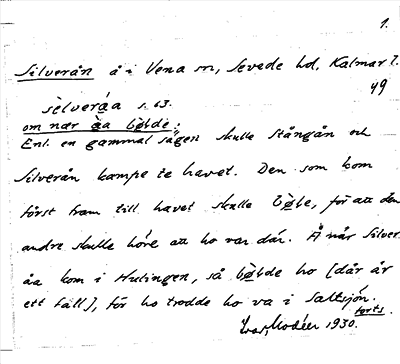 1.
Silverån å i Vena sn, Sevede hd, Kalmar l.
49
sèlveráa s. 63.
om nær åa bǿlde:
Enl. en gammal sägen skulle Stångån och
Silverån kämpe te havet. Den som kom
först fram till havet skulle bǿle, för att den
andre skulle höre att ho var där. Å når Silver-
åa kom i Hulingen, så bǿlde ho [där är
ett fall], för ho trodde ho va i Saltsjön.
forts.
Ivar Modéer 1930.